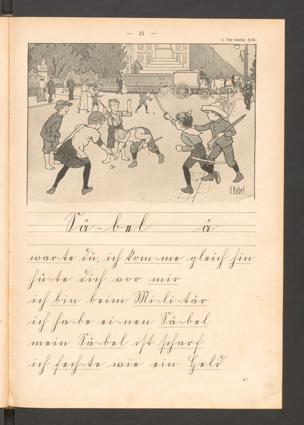 — 21 —
Sä-bel ä
war-te du, ich kom-me gleich hin
hü-te dich vor mir
ich bin beim Mi-li-tär
ich ha-be ei-nen Sä-bel
mein Sä-bel ist scharf
ich fech-te wie ein Held